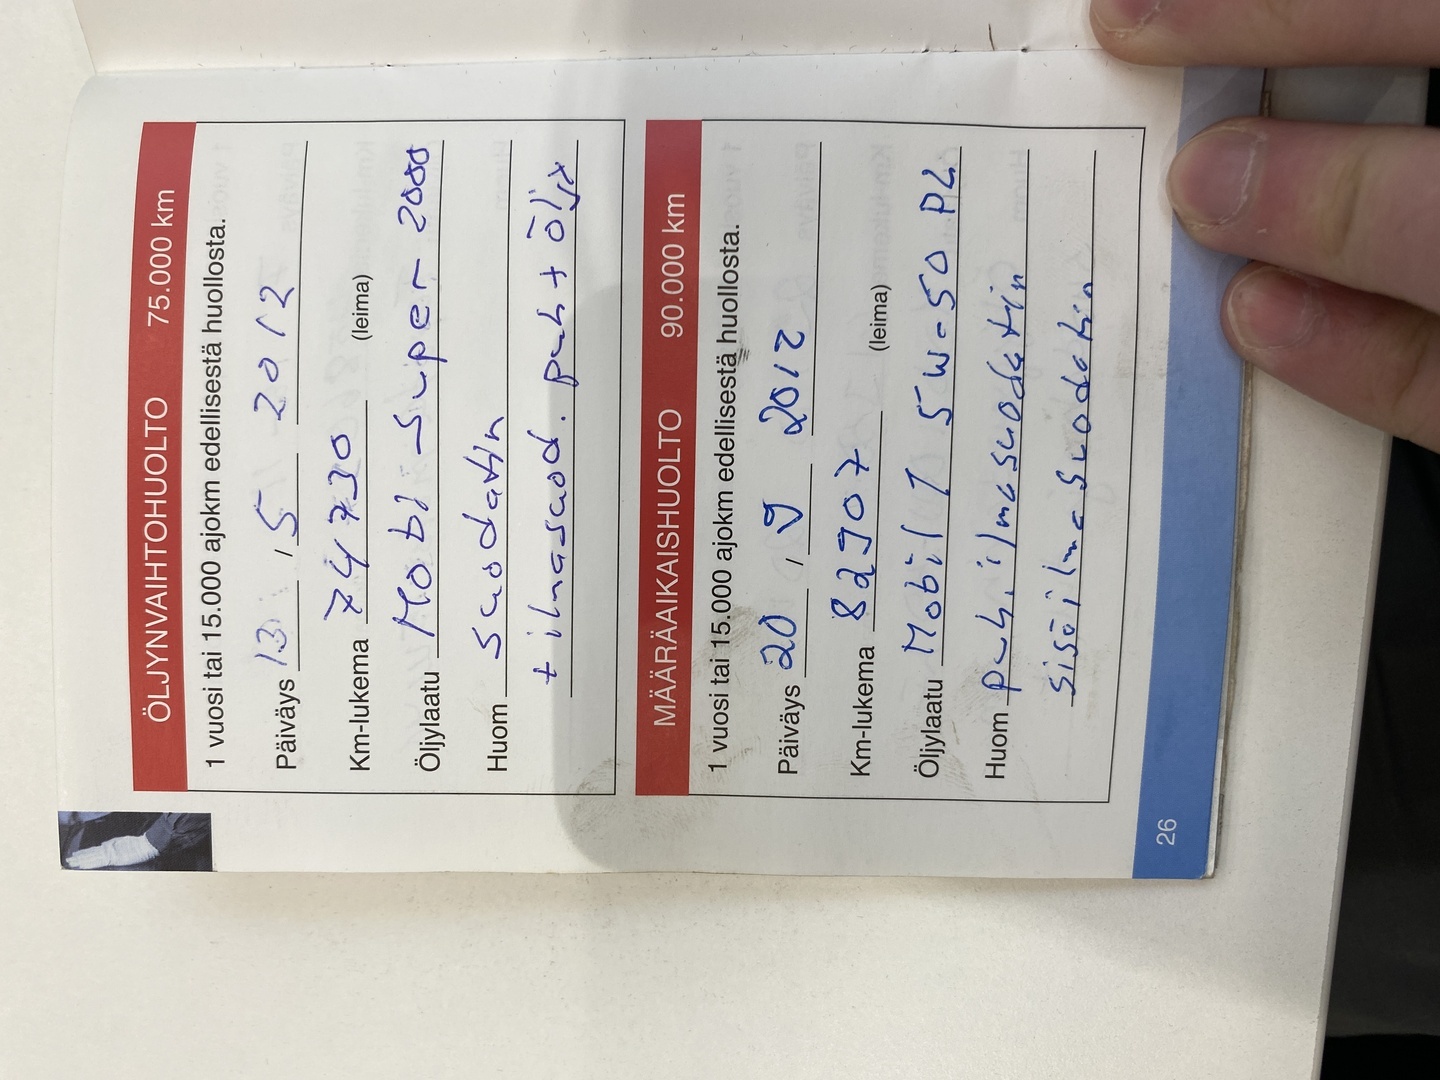 ÖLJYNVAIHTOHUOLTO 75.000 km
1 vuosi tai 15.000 ajokm edellisestä huollosta.
Päiväys 13 , 5 2012
Km-lukema 74730 (leima)
Öljylaatu Mobil Super 2000
Huom suodatin
+ ilmasuod. puh + öljx
MÄÄRÄAIKAISHUOLTO 90.000 km
1 vuosi tai 15.000 ajokm edellisestä huollosta.
Päiväys 20 , 9 2012
Km-lukema 82907 (leima)
Öljylaatu Mobil 1 5W-50 PL
Huom puh. ilmasuodatin
sisäilmasuodatin
26